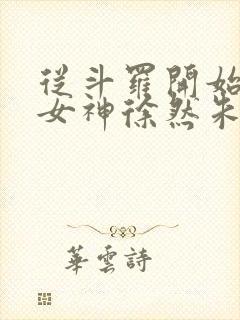 從斗羅開始
女神徐然朱
華雲詩